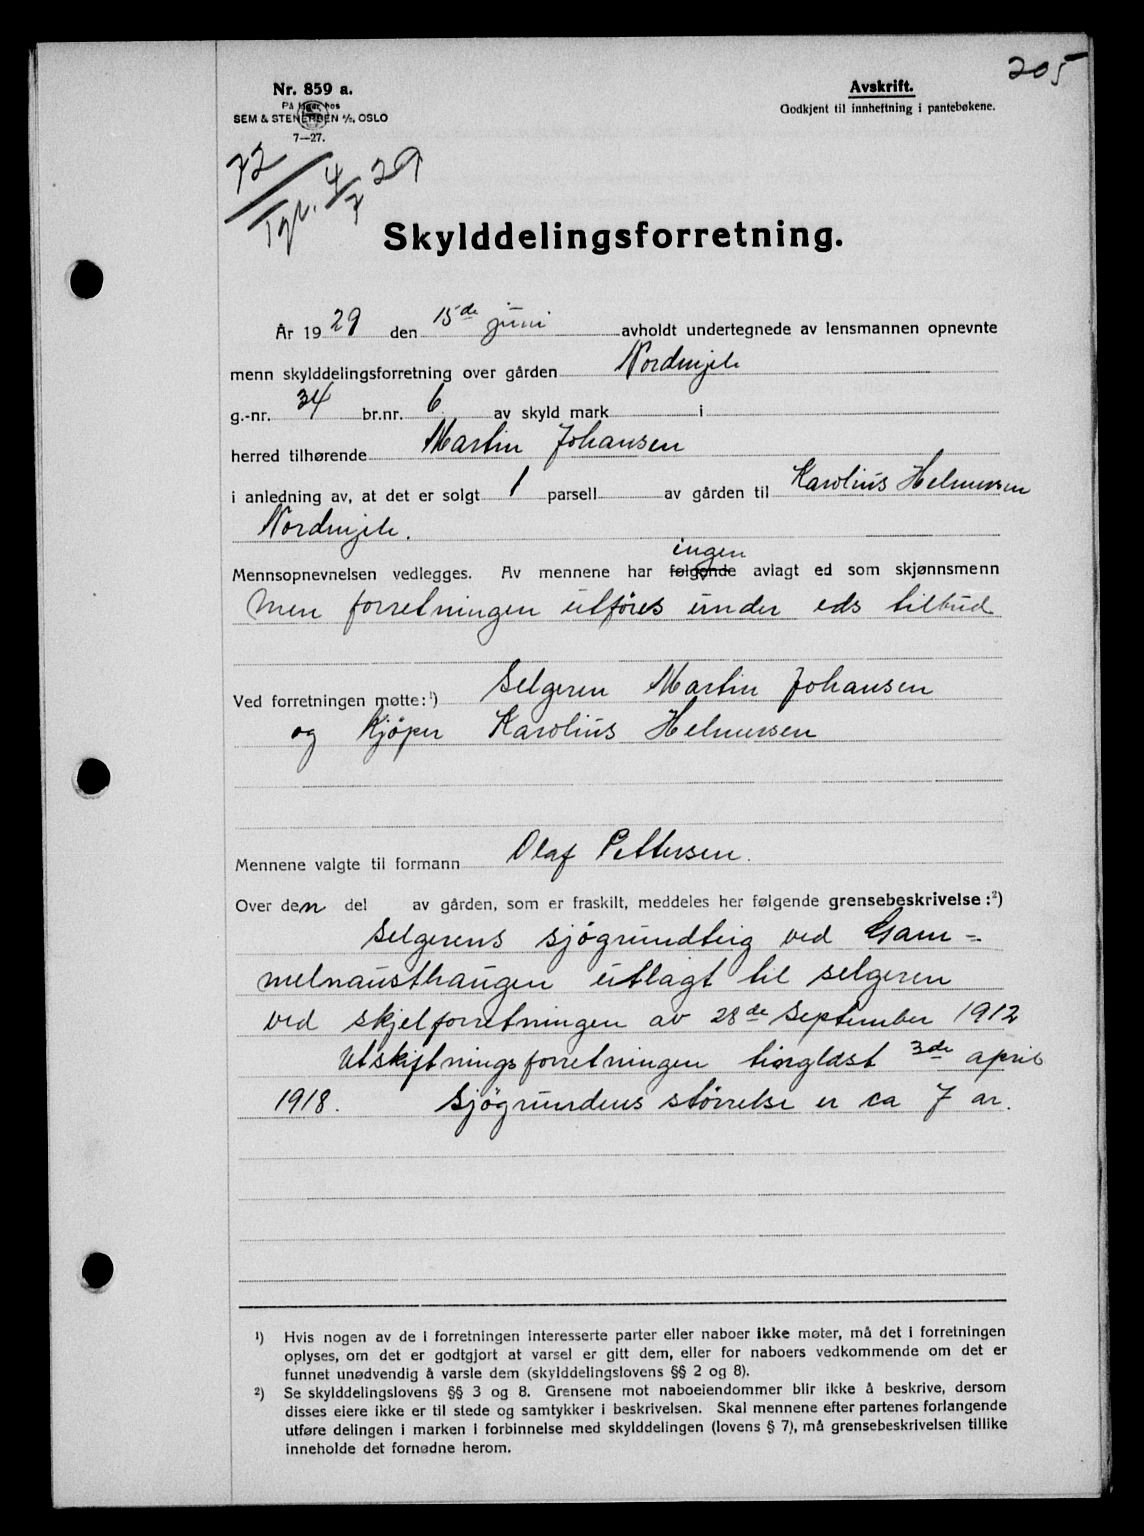 205
Nr. 859 a.
På lager hos
SEM & STENERSEN A/S, OSLO
7—27.
Avskrift.
Godkjent til innheftning i pantebøkene.
72
Tgl. 4/7 29
Skylddelingsforretning.
År 1929 den 15de juni avholdt undertegnede av lensmannen opnevnte
menn skylddelingsforretning over gården Nordmjele
g.-nr. 34 br.nr. 6 av skyld mark i
herred tilhørende Martin Johansen
i anledning av, at det er solgt 1 parsell av gården til Karolius Helmersen
Nordmjele.
ingen
Mennsopnevnelsen vedlegges. Av mennene har følgende avlagt ed som skjønnsmenn
Men forretningen utføres under eds tilbud
Ved forretningen møtte:¹) Selgeren Martin Johansen
og Kjöper Karolius Helmersen
Mennene valgte til formann Olaf Pettersen.
Over den del av gården, som er fraskilt, meddeles her følgende grensebeskrivelse:²)
Selgerens sjögrundteig ved Gam-
melnausthaugen utlagt til selgeren
ved skjelforretningen av 28de September 1912
Utskiftningsforretningen tinglæst 3de april
1918. Sjögrundens störrelse er ca 7 ar.
¹) Hvis nogen av de i forretningen interesserte parter eller naboer ikke møter, må det i forretningen
oplyses, om det er godtgjort at varsel er gitt dem, eller for naboers vedkommende om det er
funnet unødvendig å varsle dem (skylddelingslovens §§ 2 og 8).
²) Se skylddelingslovens §§ 3 og 8. Grensene mot naboeiendommer blir ikke å beskrive, dersom
disses eiere ikke er til stede og samtykker i beskrivelsen. Skal mennene efter partenes forlangende
utføre delingen i marken i forbinnelse med skylddelingen (lovens § 7), må grensebeskrivelsen tillike
inneholde det fornødne herom.